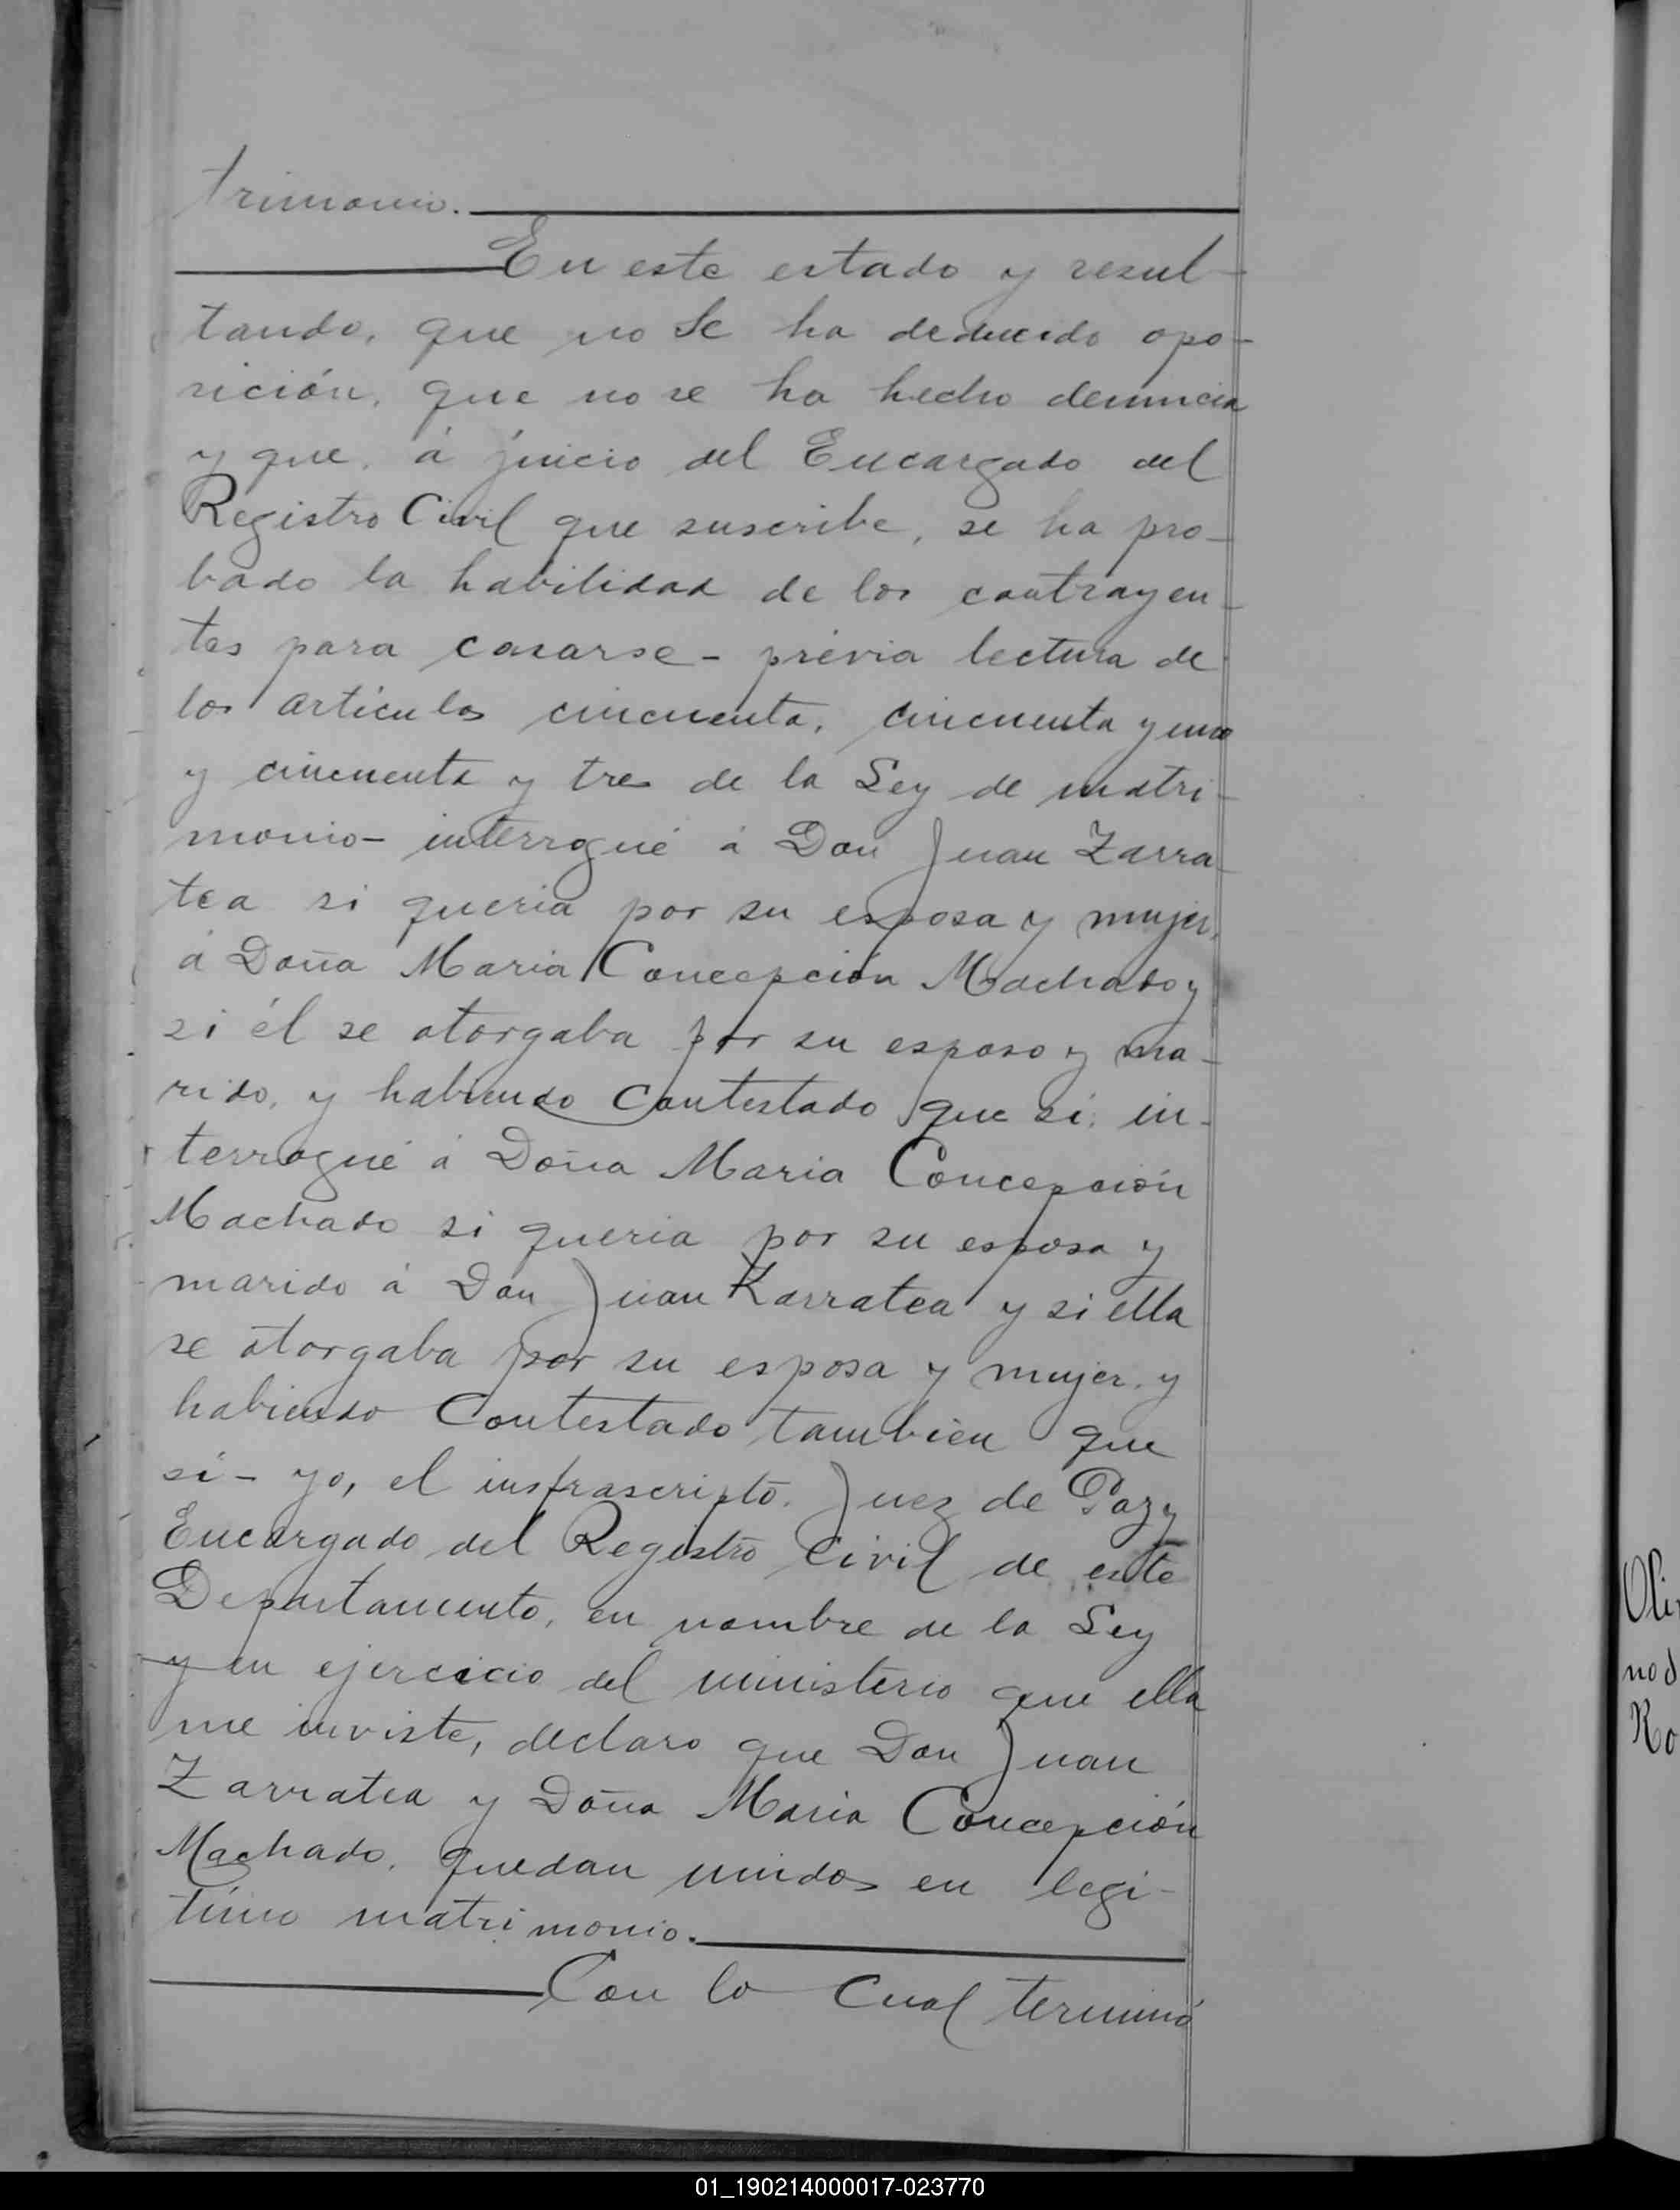 trimonio.
En este estado y resul-
tando, que no se ha deducido opo-
sición, que no se ha hecho denuncia
y que, á juicio del Encargado del
Registro Civil que suscribe, se ha pro-
bado la habilidad de los contrayen-
tes para casarse - prévia lectura de
los artículos cincuenta, cincuenta y uno
y cincuenta y tres de la Ley de matri-
monio - interrogué á Don Juan Zarra-
tea si queria por su esposa y mujer,
á Doña Maria Concepción Machado y
si él se otorgaba por su esposo y ma-
rido, y habiendo contestado que sí, in-
terrogué á Doña Maria Concepción
Machado si queria por su esposa y
marido á Don Juan Zarratea y si ella
se otorgaba por su esposa y mujer, y
habiendo contestado tambien que
sí - yo, el insfrascripto, Juez de Paz y
Encargado del Registro Civil de este
Departamento, en nombre de la Ley
y en ejercicio del ministerio que ella
me inviste, declaro que Don Juan
Zarratea y Doña Maria Concepción
Machado, quedan unidos en legí-
timo matrimonio.
Con lo cual terminó
Oli
no d
Ro
01_190214000017-023770